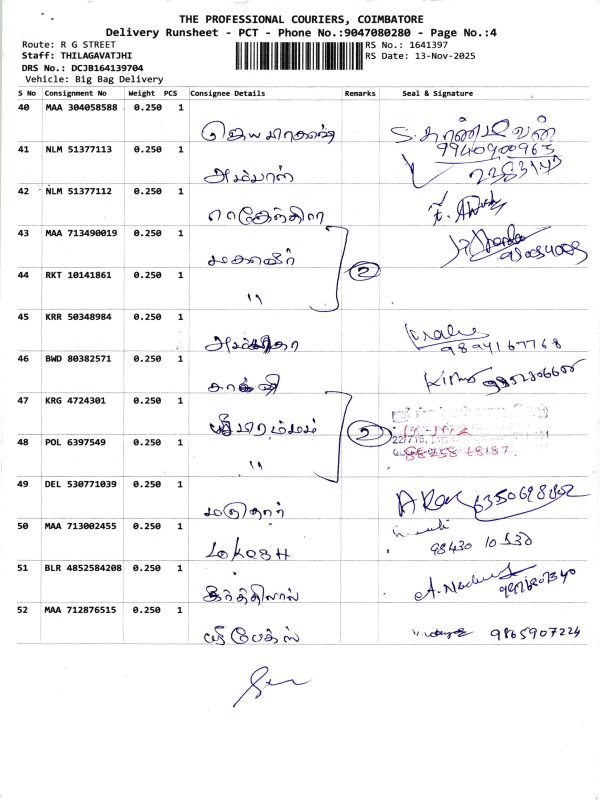 THE PROFESSIONAL COURIERS, COIMBATORE
Delivery Runsheet - PCT - Phone No.:9047080280 - Page No.:4
Route: R G STREET
RS No.: 1641397
Staff: THILAGAVATJHI
RS Date: 13-Nov-2025
DRS No.: DCJB164139704
Vehicle: Big Bag Delivery
S No Consignment No Weight PCS Consignee Details Remarks Seal & Signature
40 MAA 304058588 0.250 1
ஜெயபிரகாஷ்
41 NLM 51377113 0.250 1
அம்பாள்
42 NLM 51377112 0.250 1
ராஜேந்திரா
43 MAA 713490019 0.250 1
மகாவீர்
2
44 RKT 10141861 0.250 1
"
45 KRR 50348984 0.250 1
9894167768
46 BWD 80382571 0.250 1
47 KRG 4724301 0.250 1
2
48 POL 6397549 0.250 1
"
49 DEL 530771039 0.250 1
50 MAA 713002455 0.250 1
LOKESH
98430 10530
51 BLR 4852584208 0.250 1
கீர்த்திலால்
52 MAA 712876515 0.250 1
9865907224